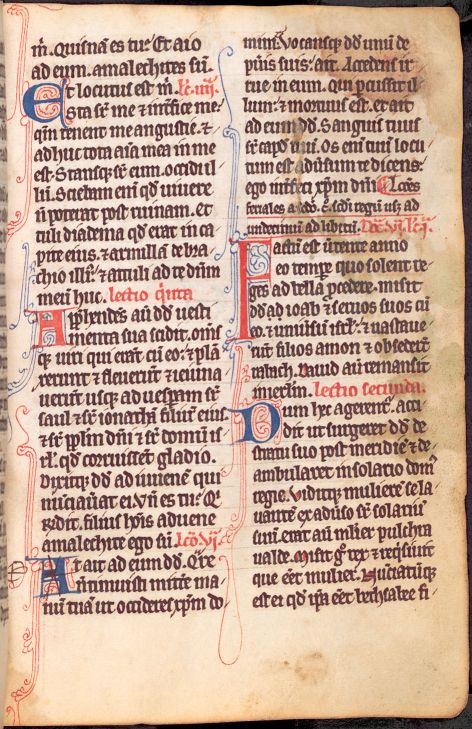 m̄. Quisnā es tu? Et aio
ad eum. amalechites sū.
Et locutus est m̄. lc̄. iiij.
Sta sr̄ me & int̄fice me
qm̄ tenent me angustie. &
adhuc tota aīa mea in me
est. Stansq; sr̄ eum. occidi il
lū. Sciebam enī qd̄ uiuere
n̄ poterat post ruinam. et
tuli diadema qd̄ erat in ca
pite eius. & armillā de bra
chio illiꝰ. & attuli ad te dn̄m
meū huc. lectio q̇nta
Apꝓhendēs aū dd̄ uesti
menta sua scidit. om̄s
q; uiri qui erāt cū eo. & plā
xerunt & fleuerūt & ieiuna
uerūt usq; ad uesp̄am sr̄
saul & sr̄ ionathā filiū eius.
& sr̄ pp̄lm dn̄i & sr̄ domū is
rl̄. qd̄ corruissēt gladio.
Dixitq; dd̄ ad iuuenē qui
nūciauāt ei. Vn̄ es tu? Q̇
r̄ndit. filius hōis aduene
amalechite ego sū. lc̄o. vj.
Et ait ad eum dd̄. Q̇re
n̄ timuisti mitt̄e ma
nū tuā ut occideres xp̄m do
mini? Vocansq; dd̄ unū de
pueris suis. ait. Accedens ir
rue in eum. Qui pcussit il
lum. & mortuus est. et ait
ad eum dd̄. Sanguis tuus
sr̄ caput tuū. Os enī tuū locu
tum est adūsum te dicens.
ego int̄feci xp̄m dn̄i.
feriales
undecimū ad libitū.
Factū est ūtente anno
eo tempr̄e quo solent re
ges ad bella ꝓcedere. misit
dd̄ ad ioab & seruos suos cū
eo. & uniūsū isrl̄. & uastaue
rūt filios amon & obsederūt
rabach. Dauid aū remansit
in ierl̄m. Lectio secunda.
Dum hec agerent. acci
dit ut surgeret dd̄ de
stratu suo post meridiē & de
ambularet in solario dom̄
regie. Viditq; muliere se la
uātē ex adūso sr̄ solariū
suū. erat aū mlier pulchra
ualde. Misit g̊ rex & reqsiuit
que eēt mulier. Nūciatūq;
est ei qd̄ ip̄a eēt bechsabee fi